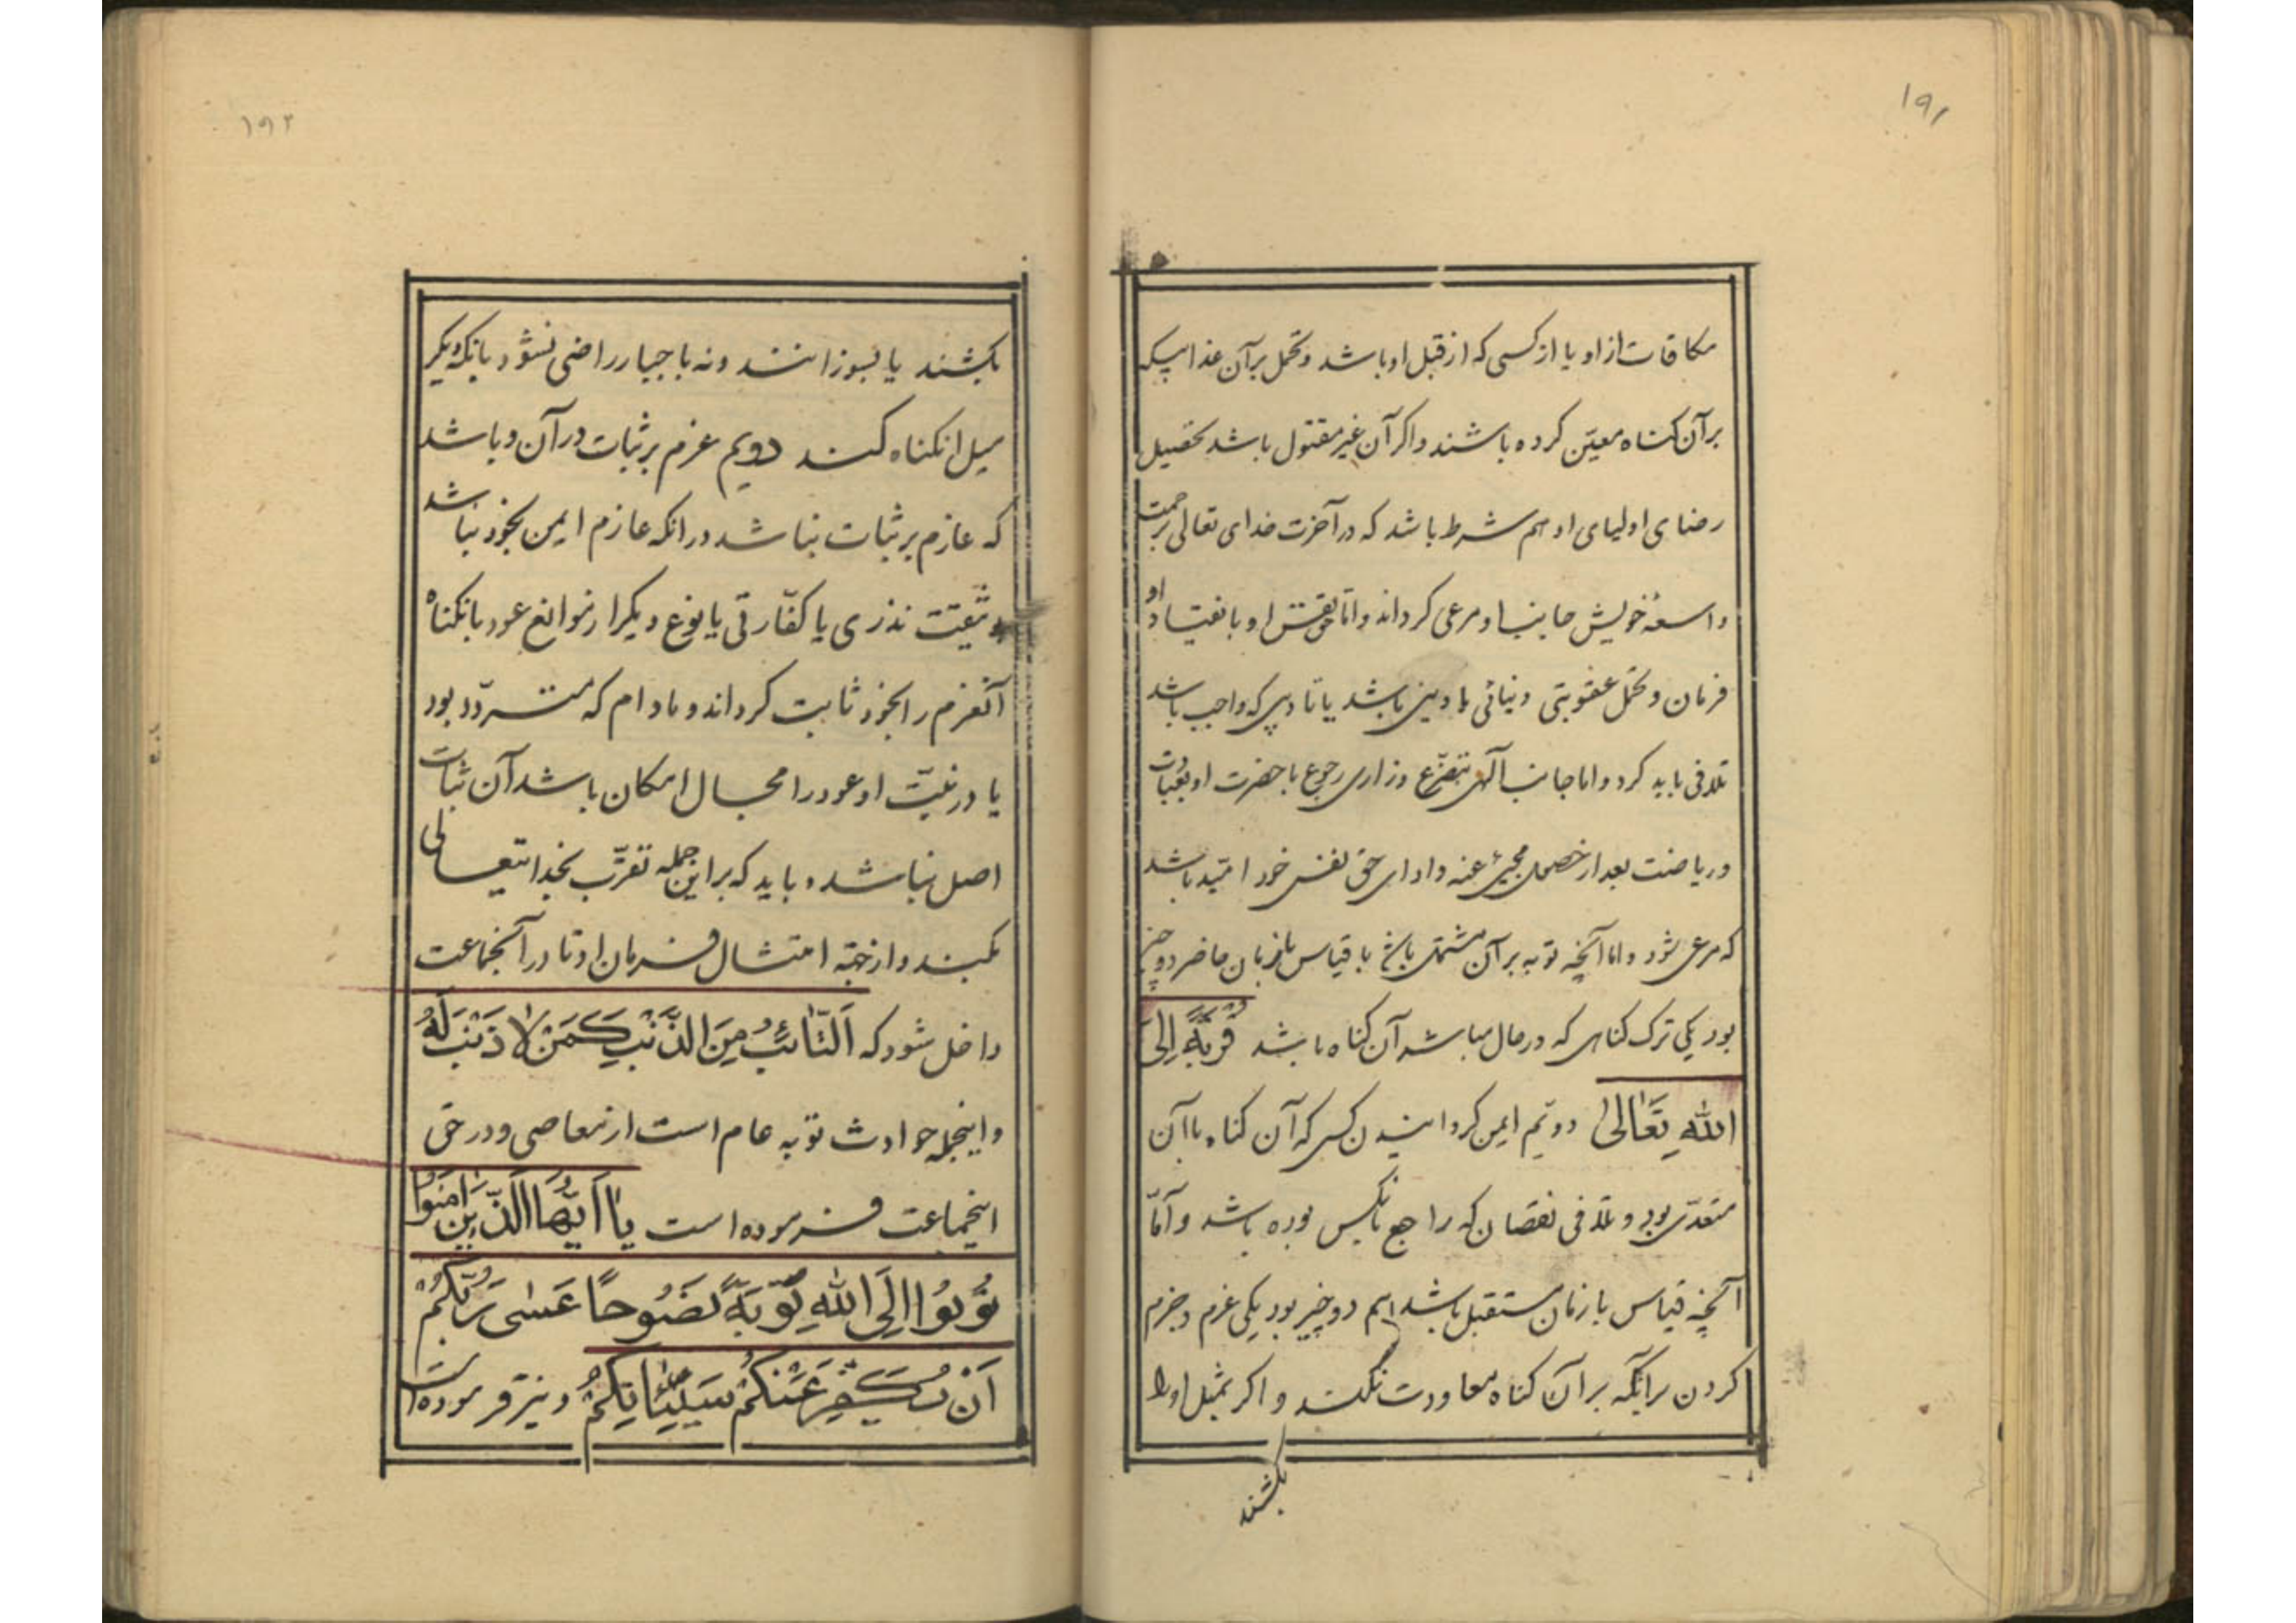 ۱۹۱
مکافات از او یا از کسی که از قبل او باشد و تحمل بر آن عذابیکه
بر آن کناه معیّن کرده باشند و اکر آن غیر مقتول باشد تحصیل
رضای اولیای او هم شرط باشد که در آخرت خدای تعالی برحمت
واسعهٔ خویش جانب او مرعی کرداند و امّا حق نفس او بانقیاد او
فرمان و تحمّل عقوبتی دنیائی یا دینی باشد یا تادیبی که واجب باشد
تلافی باید کرد و اما جانب الهی بتضرّع و زاری رجوع با حضرت او بعبادات
و ریاضت بعد از حصول مجنیّ عنه و ادای حق نفس خود امّید باشد
که مرعی شود و اما آنچه توبه بر آن مشتمل باشد با قیاس بازمان حاضر دو چیز
بود یکی ترک کناهی که در حال مباشر آن کناه باشد قُربَةً اِلیَ
اللهِ تَعَالیٰ دویّم ایمن کردانیدن کسی که آن کناه با آن
متعدّی بود و تلافی نقصان که راجع بانکس بوده باشد و آمّا
آنچه قیاس با زمان مستقبل باشد هم دو چیز بود یکی عزم و جزم
کردن برانکه بر آن کناه معاودت نکند و اکر بمثل او را
بکشند
۱۹۲
بکشند یا بسوزانند و نه باجبار راضی نشود بانکه دیکر
میل انکناه کند دویم عزم بر ثبات در آن و باشد
که عازم بر ثبات نباشد در انکه عازم ایمن بخود نباشد
وثیقت نذری یا کفّارتی یا نوع دیکر از موانع عود بانکناه
آنعزم را بخود ثابت کرداند و مادام که متردّد بود
یا در نیّت او عود را مجال امکان باشد آن ثبات
اصل نباشد و باید که بر این جمله تقرّب بخدایتعالی
بکند و از جهة امتثال فرمان او تا در آنجماعت
داخل شود که اَلتّائِبُ مِنَ الذَّنْبِ کَمَنْ لاٰ ذَنْبَ لَهُ
و اینجمله حوادث توبه عام است از معاصی و در حق
اینجماعت فرموده است یٰا اَیُّهَا الَّذینَ اٰمَنوُا
تُوبُوا اِلَی اللهِ تَوْبَةً نَصُوحاً عَسٰی رَبُّکُمْ
اَنْ یُکَفِّرَ عَنْکُمْ سَیِّئٰاتِکُمْ و نیز فرموده است